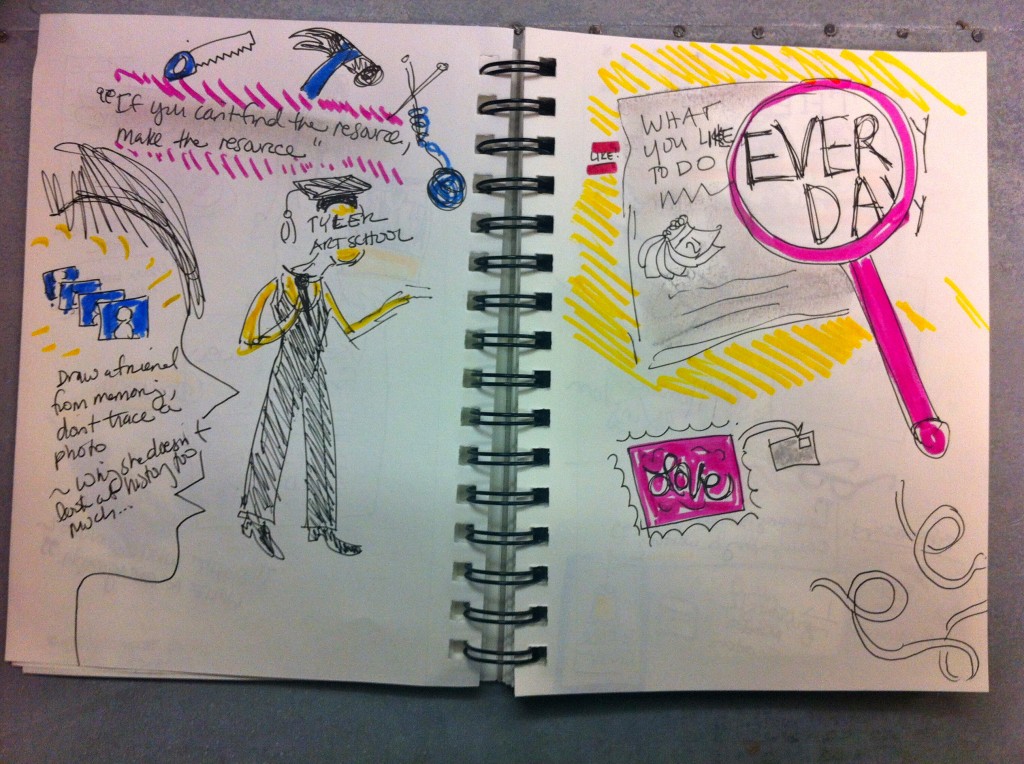 "If you can't find the resource,
make the resource"
TYLER
ART SCHOOL
Draw a friend
from memory,
don't trace a
photo
~ Why she doesn't
look at history too
much...
LIKE.
WHAT
YOU LIKE
TO DO
EVERY
DAY
Love